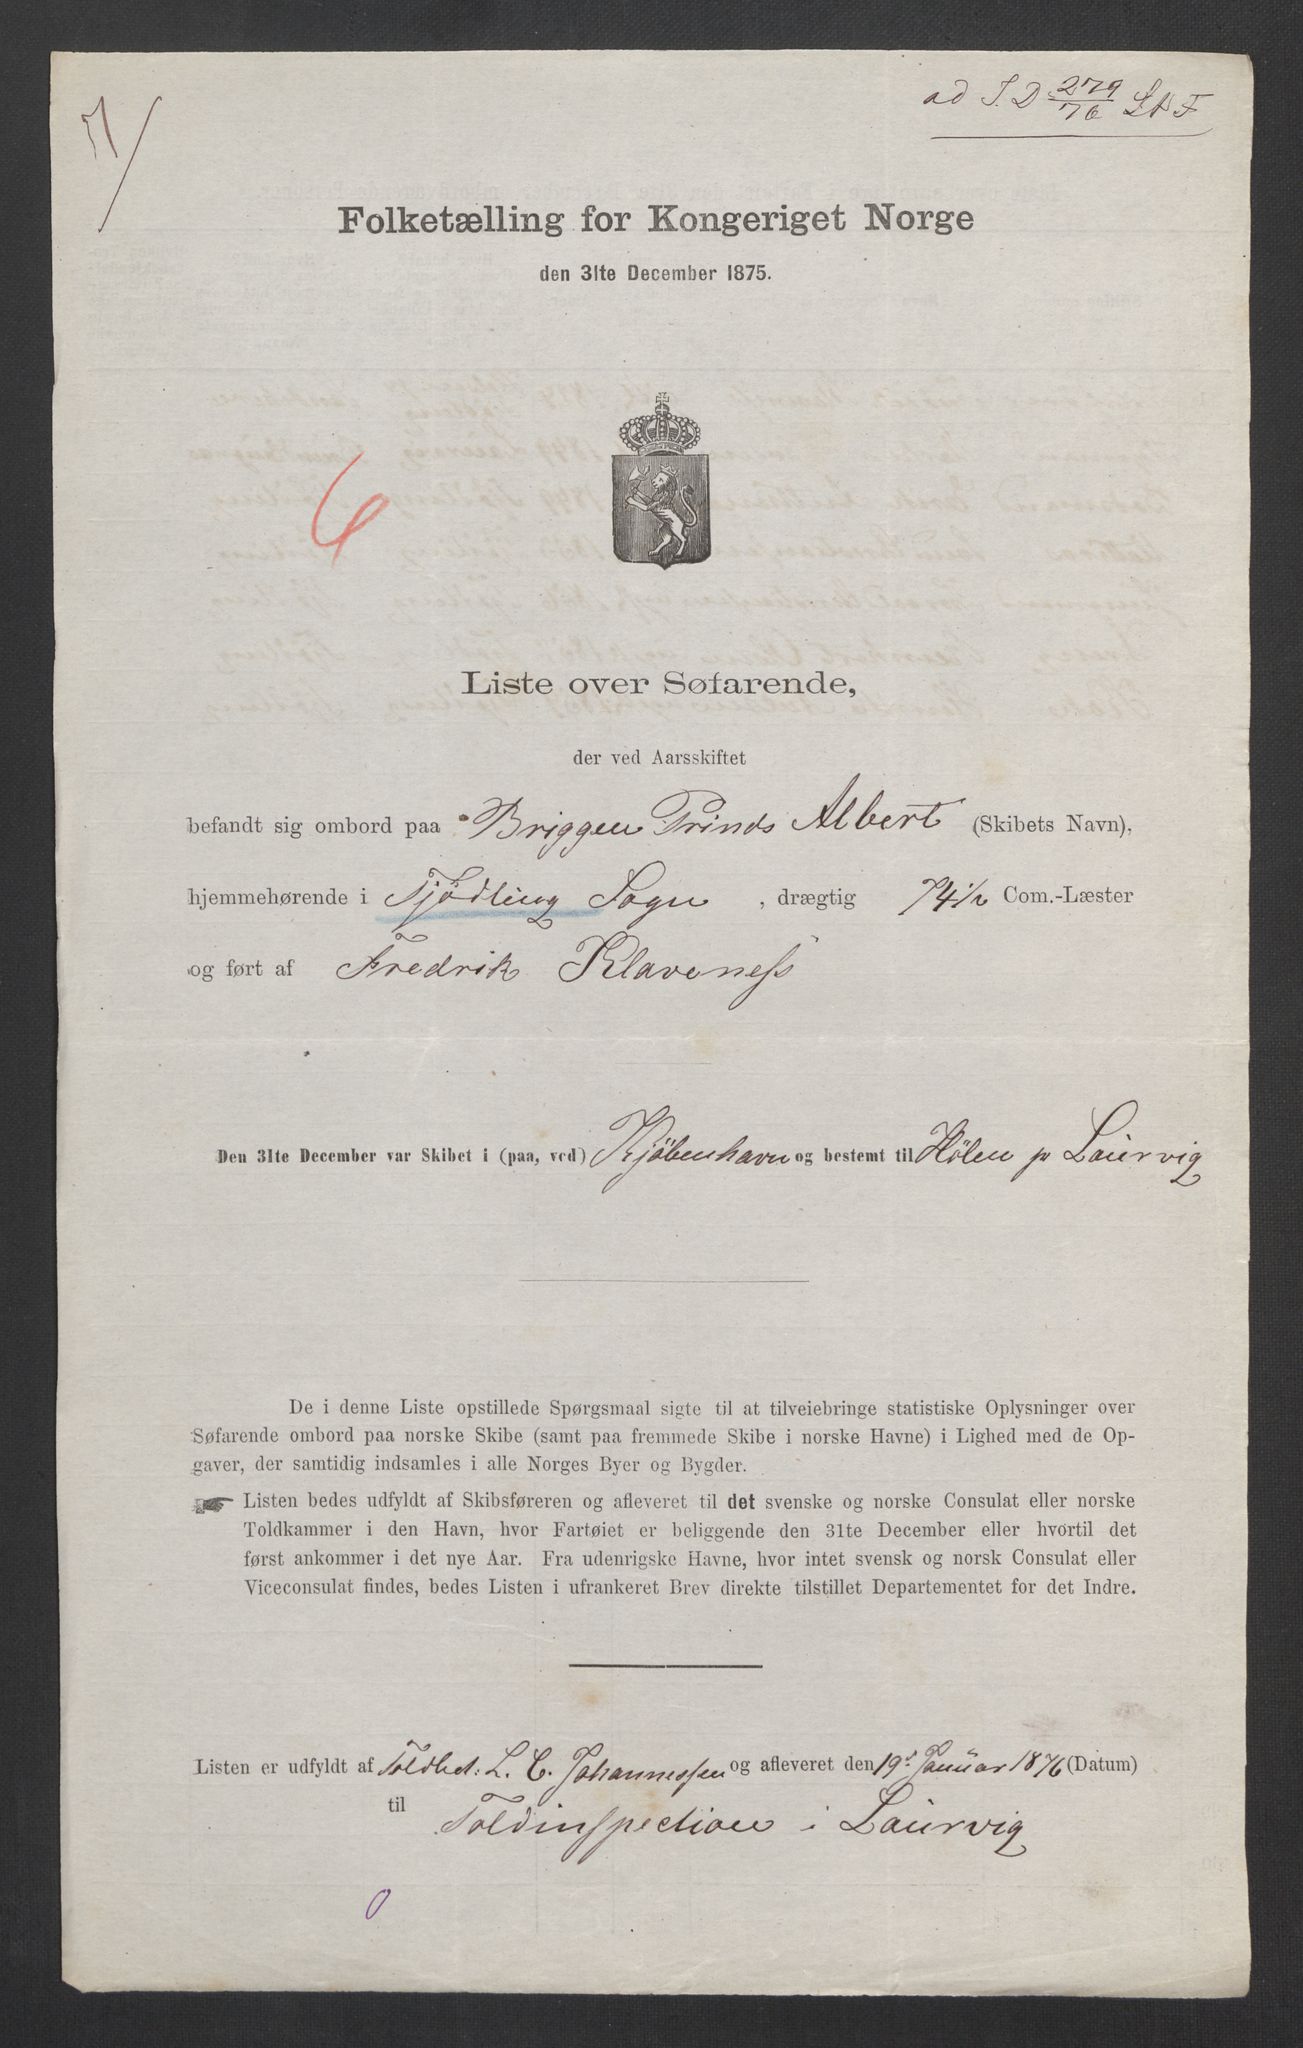 7/
ad S. D 279/76 LHF
Folketælling for Kongeriget Norge
den 31te December 1875.
6
Liste over Søfarende,
der ved Aarsskiftet
befandt sig ombord paa Briggen Prinds Albert (Skibets Navn),
hjemmehørende i Tjødling Sogn, drægtig 74 1/2 Com.-Læster
og ført af Fredrik Klaveness
Den 31te December var Skibet i (paa, ved) Kjøbenhavn og bestemt til Hølen pr Laurvig
De i denne Liste opstillede Spørgsmaal sigte til at tilveiebringe statistiske Oplysninger over
Søfarende ombord paa norske Skibe (samt paa fremmede Skibe i norske Havne) i Lighed med de Op-
gaver, der samtidig indsamles i alle Norges Byer og Bygder.
☛ Listen bedes udfyldt af Skibsføreren og afleveret til det svenske og norske Consulat eller norske
Toldkammer i den Havn, hvor Fartøiet er beliggende den 31te December eller hvortil det
først ankommer i det nye Aar. Fra udenrigske Havne, hvor intet svensk og norsk Consulat eller
Viceconsulat findes, bedes Listen i ufrankeret Brev direkte tilstillet Departementet for det Indre.
Listen er udfyldt af Toldbet: L. C. Johannessen og afleveret den 19d Januar 1876 (Datum)
til Toldinspectionen i Laurvig
0